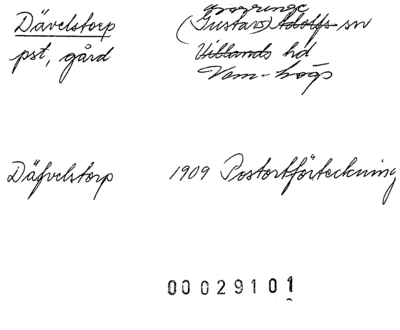 Dävelstorp
pst, gård
(Gustavs) Adolfs sn
Villands hd
Vem-högs
Däfvelstorp 1909 Postortförteckning
00029101